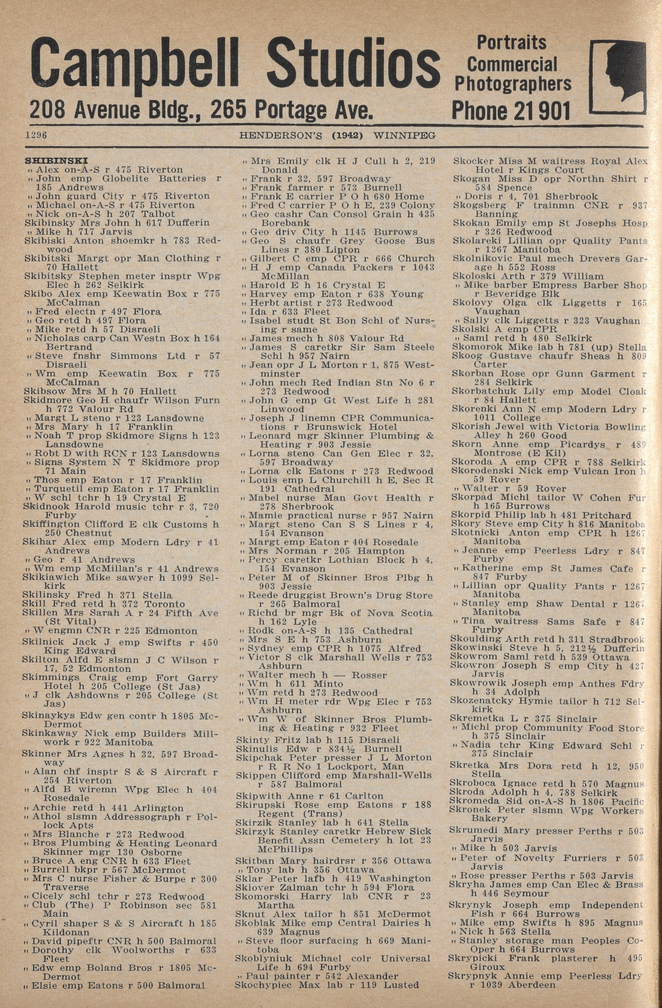 Campbell Studios
Portraits
Commercial
Photographers
208 Avenue Bldg., 265 Portage Ave.
Phone 21 901
1296
HENDERSON'S (1942) WINNIPEG
SHIBINSKI
„ Alex on-A-S r 475 Riverton
„ John emp Globelite Batteries r
185 Andrews
„ John guard City r 475 Riverton
„ Michael on-A-S r 475 Riverton
„ Nick on-A-S h 207 Talbot
Skibinsky Mrs John h 617 Dufferin
„ Mike h 717 Jarvis
Skibiski Anton shoemkr h 783 Red-
wood
Skibitski Margt opr Man Clothing r
70 Hallett
Skibitsky Stephen meter insptr Wpg
Elec h 262 Selkirk
Skibo Alex emp Keewatin Box r 775
McCalman
„ Fred electn r 497 Flora
„ Geo retd h 497 Flora
„ Mike retd h 57 Disraeli
„ Nicholas carp Can Westn Box h 164
Bertrand
„ Steve fnshr Simmons Ltd r 57
Disraeli
„ Wm emp Keewatin Box r 775
McCalman
Skibsow Mrs M h 70 Hallett
Skidmore Geo H chauf Wilson Furn
h 772 Valour Rd
„ Margt L steno r 123 Lansdowne
„ Mrs Mary h 17 Franklin
„ Noah T prop Skidmore Signs h 123
Lansdowne
„ Robt D with RCN r 123 Lansdowns
„ Signs System N T Skidmore prop
71 Main
„ Thos emp Eaton r 17 Franklin
„ Turquetil emp Eaton r 17 Franklin
„ W schl tchr h 19 Crystal E
Skidnook Harold music tchr r 3, 720
Furby
Skiffington Clifford E clk Customs h
250 Chestnut
Skihar Alex emp Modern Ldry r 41
Andrews
„ Geo r 41 Andrews
„ Wm emp McMillan's r 41 Andrews
Skikiawich Mike sawyer h 1099 Sel-
kirk
Skilinsky Fred h 371 Stella
Skill Fred retd h 372 Toronto
Skillen Mrs Sarah A r 24 Fifth Ave
(St Vital)
„ W engmn CNR r 225 Edmonton
Skilnick Jack J emp Swifts r 450
King Edward
Skilton Alfd E slsmn J C Wilson r
17, 52 Edmonton
Skimmings Craig emp Fort Garry
Hotel h 205 College (St Jas)
„ J clk Ashdowns r 205 College (St
Jas)
Skinaykys Edw gen contr h 1805 Mc-
Dermot
Skinkaway Nick emp Builders Mill-
work r 922 Manitoba
Skinner Mrs Agnes h 32, 597 Broad-
way
„ Alan chf insptr S & S Aircraft r
254 Riverton
„ Alfd B wiremn Wpg Elec h 404
Rosedale
„ Archie retd h 441 Arlington
„ Athol slsmn Addressograph r Pol-
lock Apts
„ Mrs Blanche r 273 Redwood
„ Bros Plumbing & Heating Leonard
Skinner mgr 130 Osborne
„ Bruce A eng CNR h 633 Fleet
„ Burrell bkpr r 567 McDermot
„ Mrs C nurse Fisher & Burpe r 300
Traverse
„ Cicely schl tchr r 273 Redwood
„ Club (The) P Robinson sec 581
Main
„ Cyril shaper S & S Aircraft h 185
Kildonan
„ David pipeftr CNR h 500 Balmoral
„ Dorothy clk Woolworths r 633
Fleet
„ Edw emp Boland Bros r 1805 Mc-
Dermot
„ Elsie emp Eatons r 500 Balmoral
„ Mrs Emily clk H J Cull h 2, 219
Donald
„ Frank r 32, 597 Broadway
„ Frank farmer r 573 Burnell
„ Frank E carrier P O h 680 Home
„ Fred C carrier P O h E, 239 Colony
„ Geo cashr Can Consol Grain h 435
Borebank
„ Geo driv City h 1145 Burrows
„ Geo S chaufr Grey Goose Bus
Lines r 380 Lipton
„ Gilbert C emp CPR r 666 Church
„ H J emp Canada Packers r 1043
McMillan
„ Harold E h 16 Crystal E
„ Harvey emp Eaton r 638 Young
„ Herbt artist r 273 Redwood
„ Ida r 633 Fleet
„ Isabel studt St Bon Schl of Nurs-
ing r same
„ James mech h 808 Valour Rd
„ James S caretkr Sir Sam Steele
Schl h 957 Nairn
„ Jean opr J L Morton r 1, 875 West-
minster
„ John mech Red Indian Stn No 6 r
273 Redwood
„ John G emp Gt West Life h 281
Linwood
„ Joseph J linemn CPR Communica-
tions r Brunswick Hotel
„ Leonard mgr Skinner Plumbing &
Heating r 903 Jessie
„ Lorna steno Can Gen Elec r 32,
597 Broadway
„ Lorna clk Eatons r 273 Redwood
„ Louis emp L Churchill h E, Sec R
191 Cathedral
„ Mabel nurse Man Govt Health r
278 Sherbrook
„ Mamie practical nurse r 957 Nairn
„ Margt steno Can S S Lines r 4,
154 Evanson
„ Margt emp Eaton r 404 Rosedale
„ Mrs Norman r 205 Hampton
„ Percy caretkr Lothian Block h 4,
154 Evanson
„ Peter M of Skinner Bros Plbg h
903 Jessie
„ Reede druggist Brown's Drug Store
r 265 Balmoral
„ Richd br mgr Bk of Nova Scotia
h 162 Lyle
„ Rodk on-A-S h 135 Cathedral
„ Mrs S E h 753 Ashburn
„ Sydney emp CPR h 1075 Alfred
„ Victor S clk Marshall Wells r 753
Ashburn
„ Walter mech h — Rosser
„ Wm h 611 Minto
„ Wm retd h 273 Redwood
„ Wm H meter rdr Wpg Elec r 753
Ashburn
„ Wm W of Skinner Bros Plumb-
ing & Heating r 932 Fleet
Skinty Fritz lab h 115 Disraeli
Skinulis Edw r 834½ Burnell
Skipchak Peter presser J L Morton
r R R No 1 Lockport, Man
Skippen Clifford emp Marshall-Wells
r 587 Balmoral
Skipwith Anne r 61 Carlton
Skirupski Rose emp Eatons r 188
Regent (Trans)
Skirzik Stanley lab h 641 Stella
Skirzyk Stanley caretkr Hebrew Sick
Benefit Assn Cemetery h lot 23
McPhillips
Skitban Mary hairdrsr r 356 Ottawa
„ Tony lab h 356 Ottawa
Sklar Peter lafb h 419 Washington
Sklover Zalman tchr h 594 Flora
Skomorski Harry lab CNR r 23
Martha
Sknut Alex tailor h 851 McDermot
Skoblak Mike emp Central Dairies h
639 Magnus
„ Steve floor surfacing h 669 Mani-
toba
Skoblyniuk Michael colr Universal
Life h 694 Furby
„ Paul painter r 542 Alexander
Skochypiec Max lab r 119 Lusted
Skocker Miss M waitress Royal Alex
Hotel r Kings Court
Skogan Miss D opr Northn Shirt r
584 Spence
„ Doris r 4, 701 Sherbrook
Skogsberg F trainmn CNR r 937
Banning
Skokan Emily emp St Josephs Hosp
r 326 Redwood
Skolareki Lillian opr Quality Pants
r 1267 Manitoba
Skolnikovic Paul mech Drevers Gar-
age h 552 Ross
Skoloski Arth r 379 William
„ Mike barber Empress Barber Shop
r Beveridge Blk
Skolovy Olga clk Liggetts r 165
Vaughan
„ Sally clk Liggetts r 323 Vaughan
Skolski A emp CPR
„ Saml retd h 480 Selkirk
Skomorok Mike lab h 781 (up) Stella
Skoog Gustave chaufr Sheas h 809
Carter
Skorban Rose opr Gunn Garment r
284 Selkirk
Skorbatchuk Lily emp Model Cloak
r 84 Hallett
Skorenki Ann N emp Modern Ldry r
1011 College
Skorish Jewel with Victoria Bowling
Alley h 260 Good
Skorn Anne emp Picardys r 489
Montrose (E Kil)
Skoroda A emp CPR r 788 Selkirk
Skorodenski Nick emp Vulcan Iron h
59 Rover
„ Walter r 59 Rover
Skorpad Michl tailor W Cohen Fur
h 165 Burrows
Skorpid Philip lab h 481 Pritchard
Skory Steve emp City h 816 Manitoba
Skotnicki Anton emp CPR h 1267
Manitoba
„ Jeanne emp Peerless Ldry r 847
Furby
„ Katherine emp St James Cafe r
847 Furby
„ Lillian opr Quality Pants r 1267
Manitoba
„ Stanley emp Shaw Dental r 1267
Manitoba
„ Tina waitress Sams Safe r 847
Furby
Skoulding Arth retd h 311 Stradbrook
Skowinski Steve h 5, 212½ Dufferin
Skowrom Saml retd h 539 Ottawa
Skowron Joseph S emp City h 427
Jarvis
Skowrowik Joseph emp Anthes Fdry
h 34 Adolph
Skozenatchy Hymie tailor h 712 Sel-
kirk
Skremetka L r 375 Sinclair
„ Michl prop Community Food Store
h 375 Sinclair
„ Nadia tchr King Edward Schl r
375 Sinclair
Skretka Mrs Dora retd h 12, 950
Stella
Skroboca Ignace retd h 570 Magnus
Skroda Adolph h 4, 788 Selkirk
Skromeda Sid on-A-S h 1806 Pacific
Skronek Peter slsmn Wpg Workers
Bakery
Skrumedi Mary presser Perths r 503
Jarvis
„ Mike h 503 Jarvis
„ Peter of Novelty Furriers r 503
Jarvis
„ Rose presser Perths r 503 Jarvis
Skryha James emp Can Elec & Brass
h 446 Seymour
Skrynyk Joseph emp Independent
Fish r 664 Burrows
„ Mike emp Swifts h 895 Magnus
„ Nick h 563 Stella
„ Stanley storage man Peoples Co-
Oper h 664 Burrows
Skrypicki Frank plasterer h 495
Giroux
Skrypnyk Annie emp Peerless Ldry
r 1039 Aberdeen